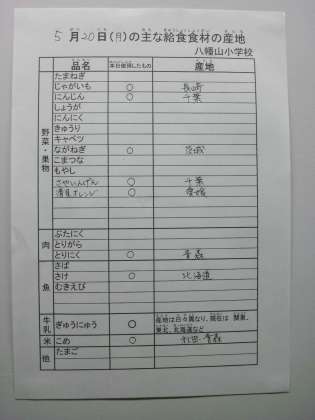 5月20日(月)の主な給食食材の産地
八幡山小学校
品名 本日使用したもの 産地
野菜・果物
たまねぎ
じゃがいも ○ 長崎
にんじん ○ 千葉
しょうが
にんにく
きゅうり
キャベツ
ながねぎ ○ 茨城
こまつな
もやし
さやいんげん ○ 千葉
清見オレンジ ○ 愛媛
肉
ぶたにく
とりがら
とりにく ○ 青森
魚
さば
さけ ○ 北海道
むきえび
牛乳 ぎゅうにゅう ○ 産地は日々異なり、現在は 関東、
東北、北海道など
米 こめ ○ 秋田・青森
他 たまご